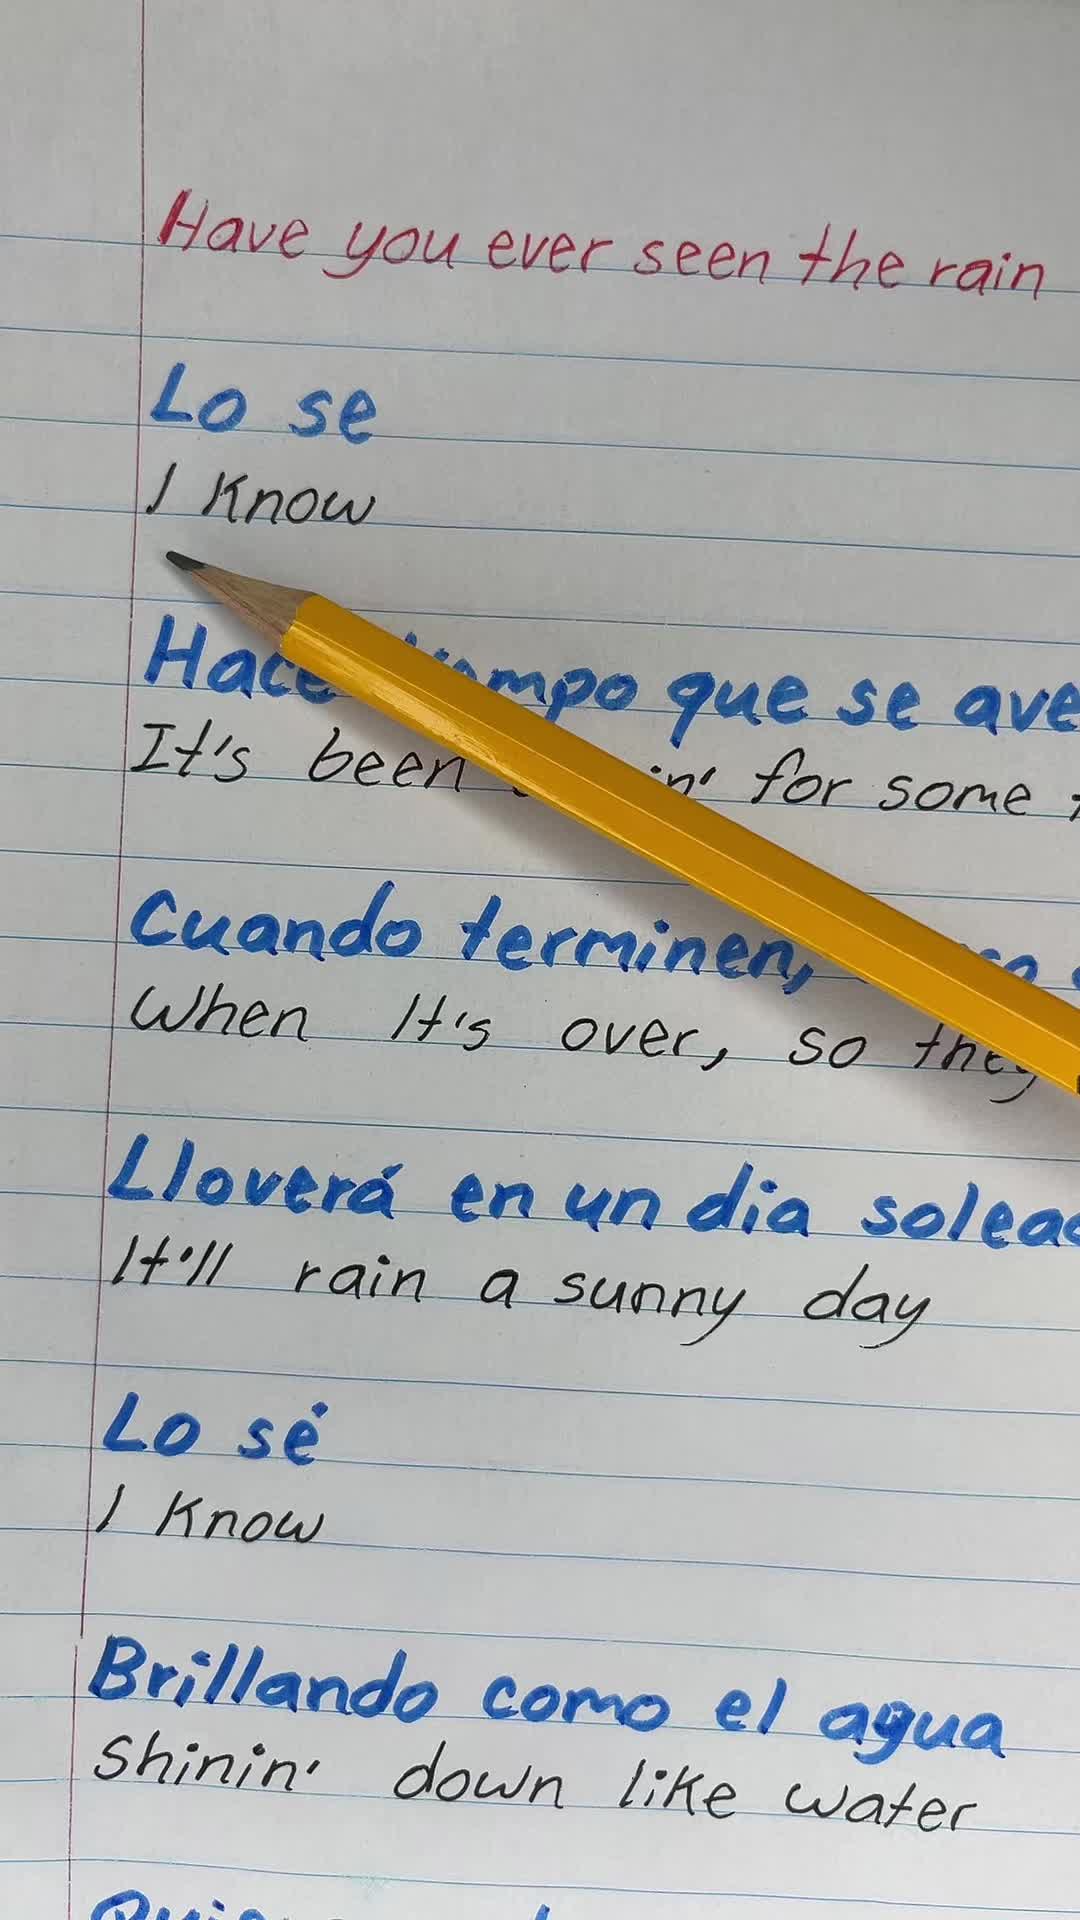 Have you ever seen the rain
Lo se
I Know
Hace tiempo que se ave
It's been in' for some
Cuando terminen,
When It's over, so they
Lloverá en un dia solead
It'll rain a sunny day
Lo sé
I Know
Brillando como el agua
shinin' down like water